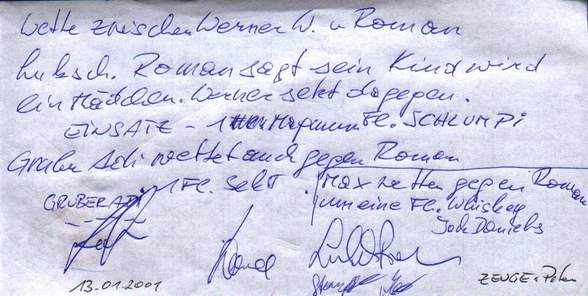 Wette zwischen Werner W. u Roman
huksch. Roman sagt sein Kind wird
ein Mädchen. Werner setzt dagegen.
EINSATZ - 1 Fl. SCHLUMPI
Gruber Adi wettet auch gegen Roman
1 Fl. Sekt.
Max wetten gegen Roman
um eine Fl. Whiskey
Jack Daniels
GRUBER ADI
13.01.2001
ZEUGE: